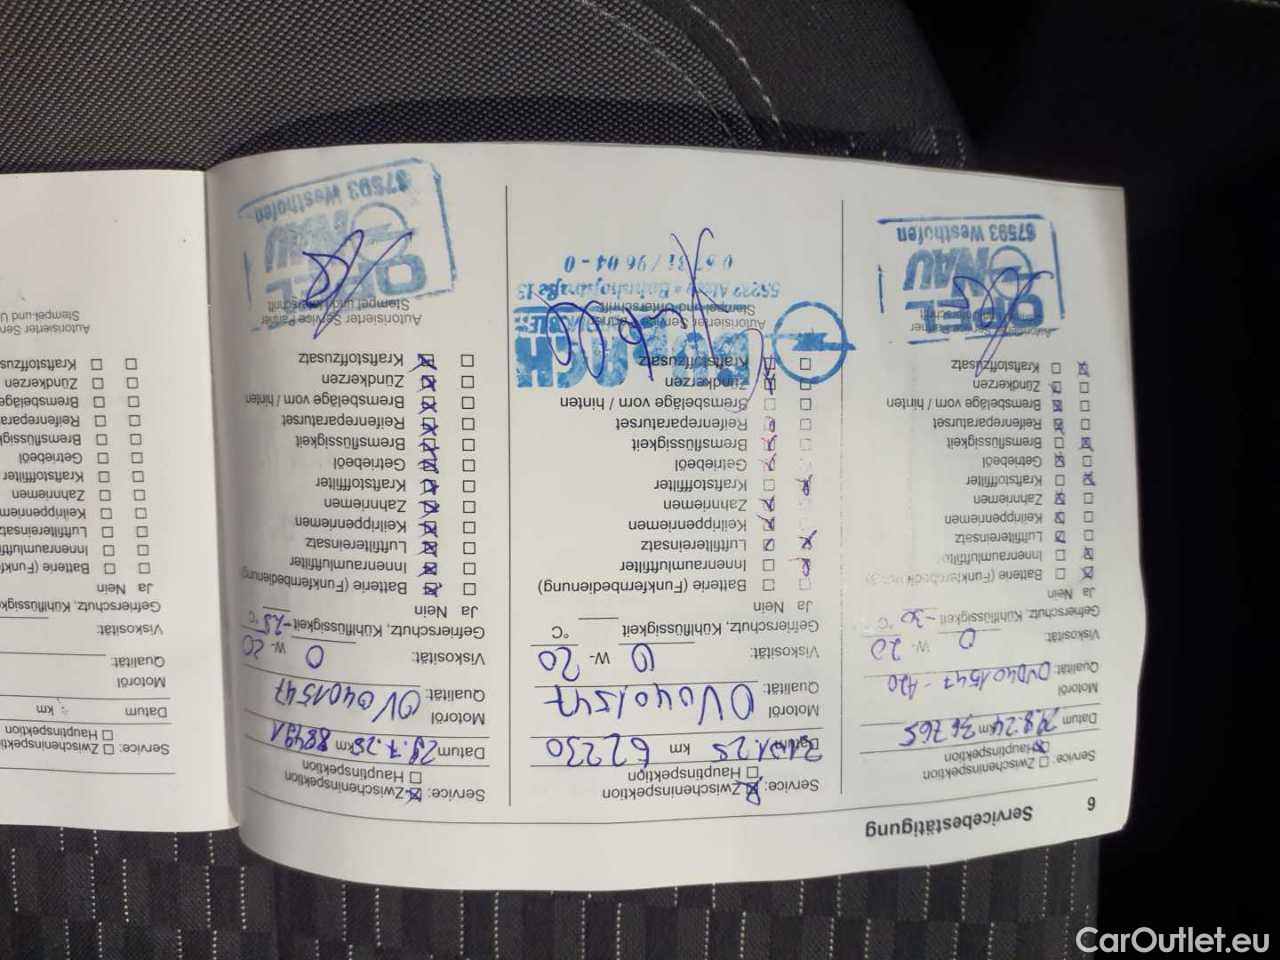 6 Servicebestätigung
Service: Zwischeninspektion
Hauptinspektion
Datum 29.8.24 km 36765
Motoröl
Qualität: OV0401547 - A20
Viskosität: 0 W- 20
Gefrierschutz, Kühlflüssigkeit -30 °C
Ja Nein
Batterie
Innenraumluftfilter
Luftfiltereinsatz
Keilrippenriemen
Zahnriemen
Kraftstofffilter
Getriebeöl
Bremsflüssigkeit
Reifenreparaturset
Bremsbeläge vorn / hinten
Zündkerzen
Kraftstoffzusatz
OPEL
NAU
67593 Westhofen
Service: Zwischeninspektion
Hauptinspektion
Datum km 62230
Motoröl
Qualität: OV0401547
Viskosität: 0 W- 20
Gefrierschutz, Kühlflüssigkeit °C
Ja Nein
Batterie (Funkfernbedienung)
Innenraumluftfilter
Luftfiltereinsatz
Keilrippenriemen
Zahnriemen
Kraftstofffilter
Getriebeöl
Bremsflüssigkeit
Reifenreparaturset
Bremsbeläge vorn / hinten
Zündkerzen
Kraftstoffzusatz
Autorisierter Service Partner
Stempel und Unterschrift
55232 Alzey • Bahnhofstraße 13
0 67 31 / 96 04 - 0
Service: Zwischeninspektion
Hauptinspektion
Datum 29.7.25 km 88491
Motoröl
Qualität: OV0401547
Viskosität: 0 W- 20
Gefrierschutz, Kühlflüssigkeit -25 °C
Ja Nein
Batterie (Funkfernbedienung)
Innenraumluftfilter
Luftfiltereinsatz
Keilrippenriemen
Zahnriemen
Kraftstofffilter
Getriebeöl
Bremsflüssigkeit
Reifenreparaturset
Bremsbeläge vorn / hinten
Zündkerzen
Kraftstoffzusatz
Autorisierter Service Partner
Stempel und Unterschrift
OPEL
NAU
67593 Westhofen
Service: Zwischeninspekti
Hauptinspektion
Datum km
Motoröl
Qualität:
Viskosität:
Gefrierschutz, Kühlflüssigke
Ja Nein
Batterie (Funkfe
Innenraumluftfi
Luftfiltereinsatz
Keilrippenrieme
Zahnriemen
Kraftstofffilter
Getriebeöl
Bremsflüssigk
Reifenrepara
Bremsbeläge
Zündkerzen
Kraftstoffzus
Autorisierter Ser
Stempel und U
CarOutlet.eu